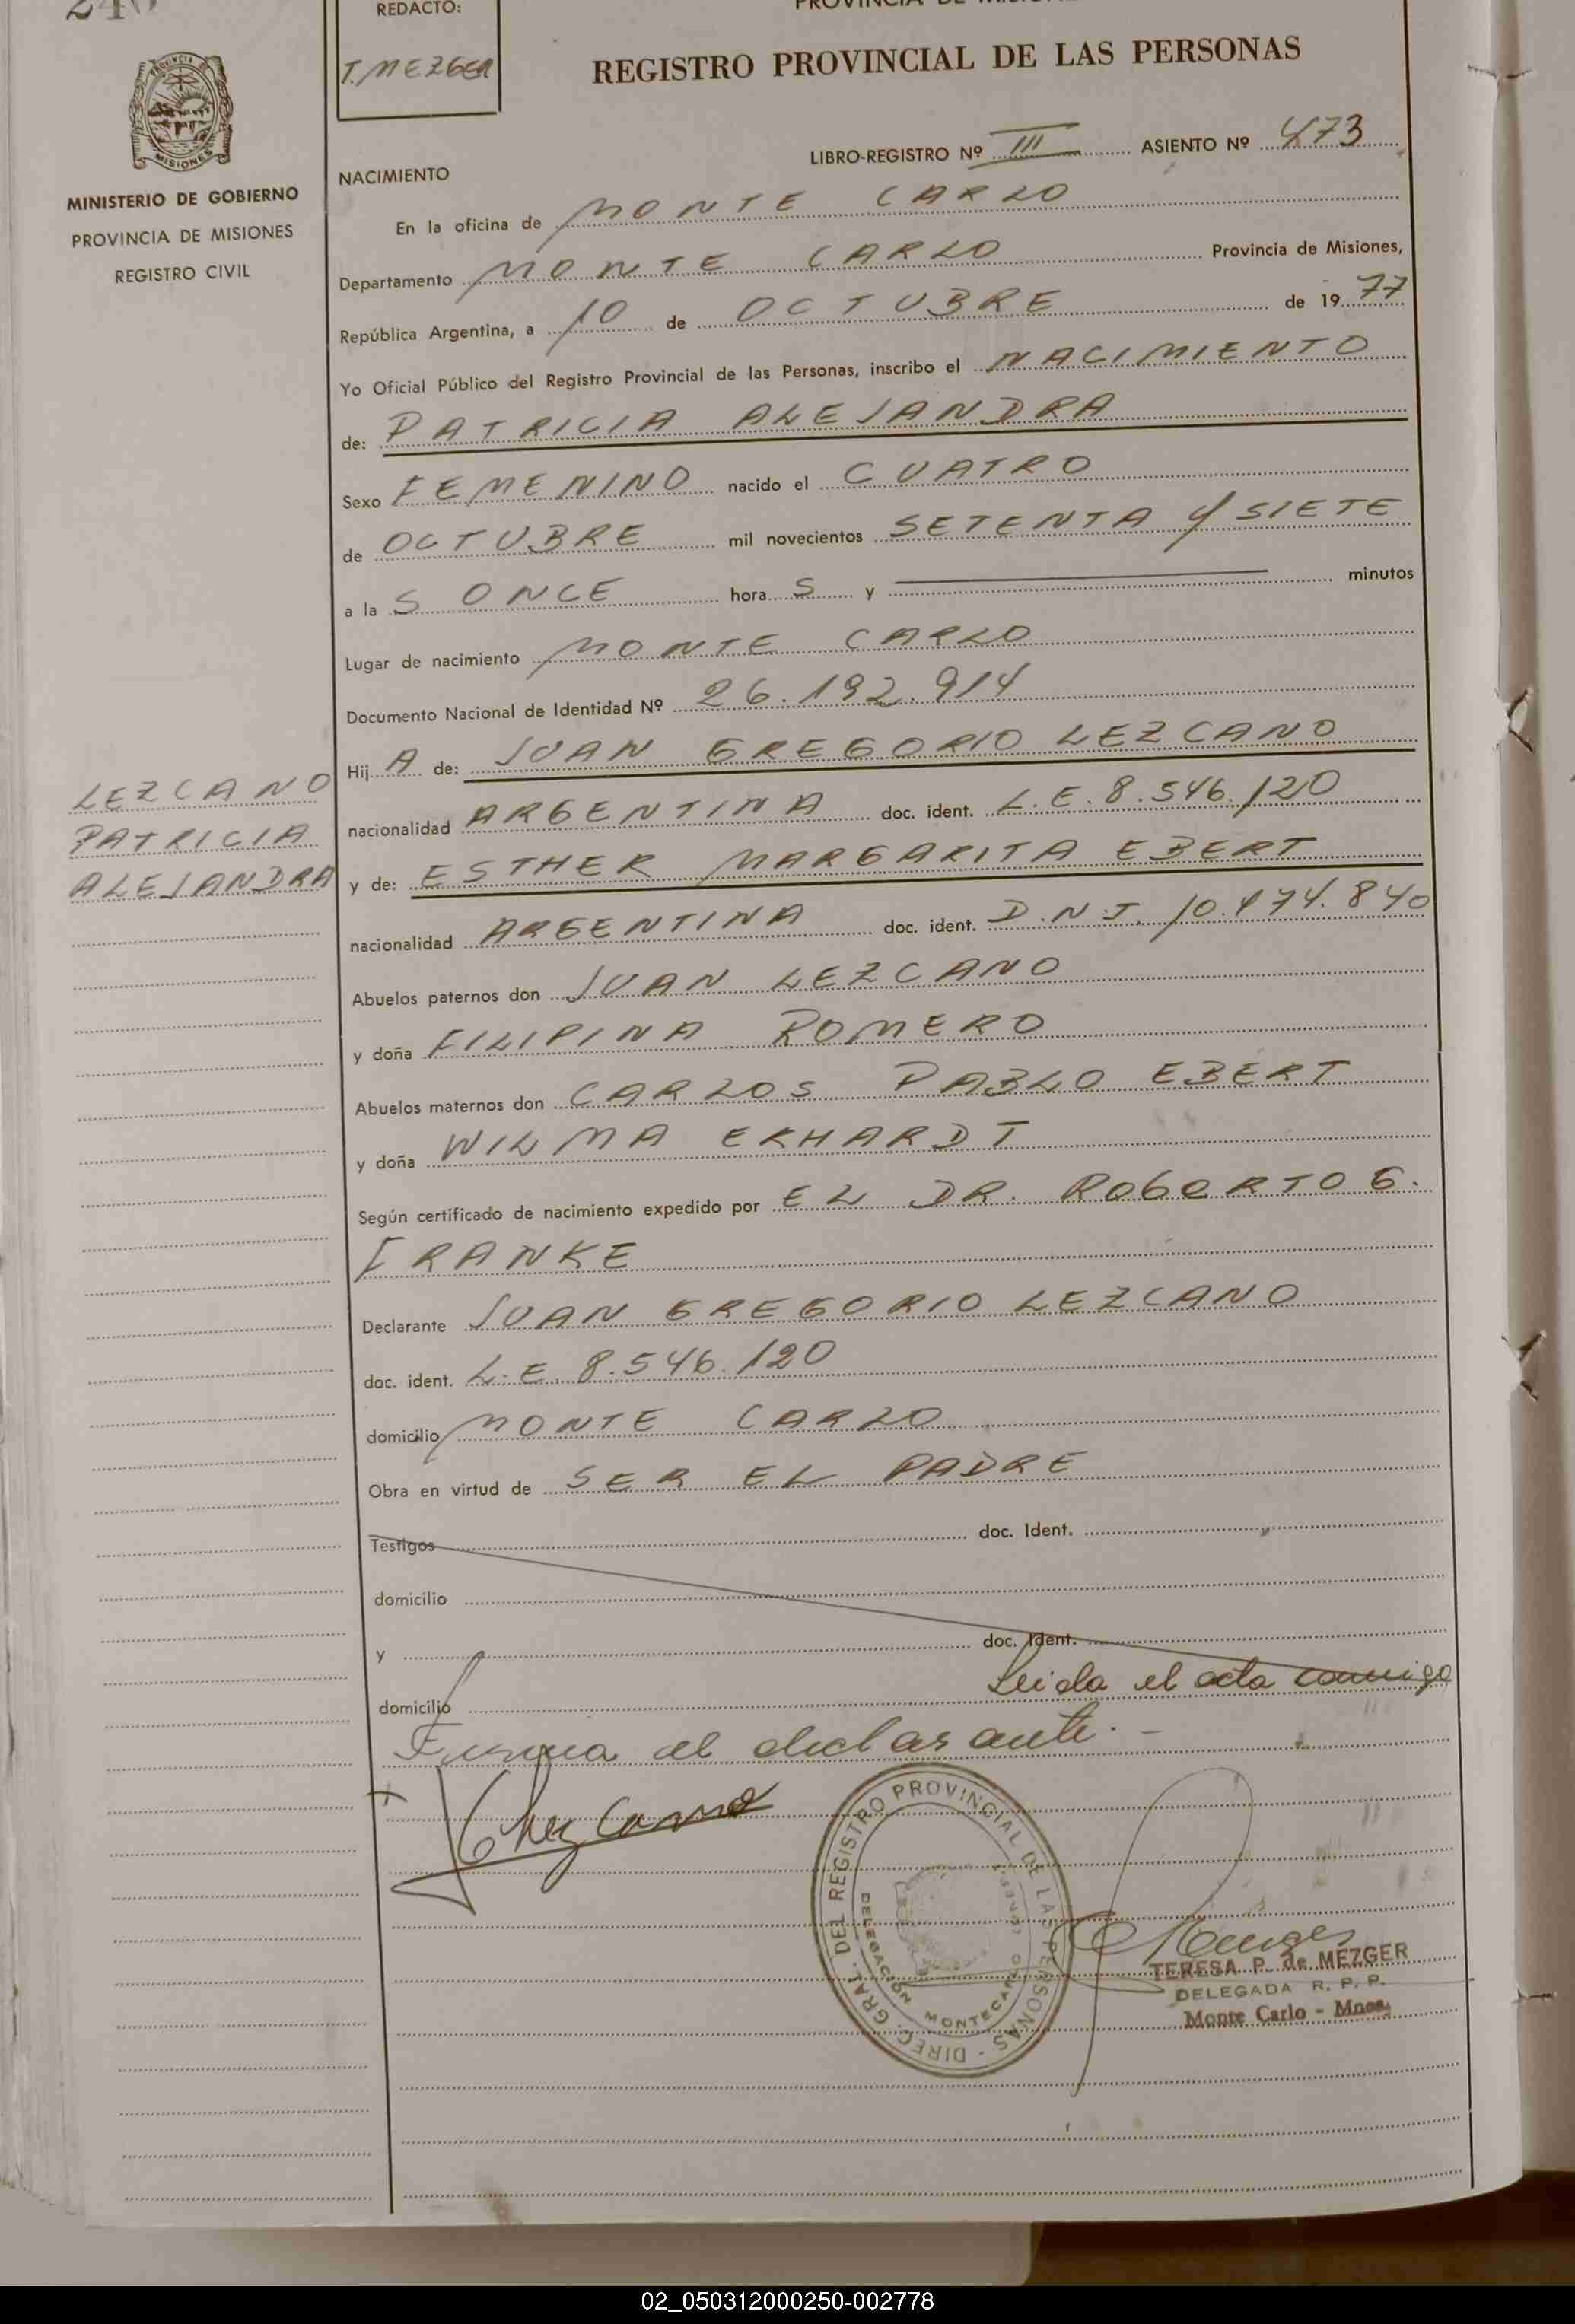 REDACTO:
T. MEZGER
REGISTRO PROVINCIAL DE LAS PERSONAS
MISIONES
MINISTERIO DE GOBIERNO
PROVINCIA DE MISIONES
REGISTRO CIVIL
LIBRO-REGISTRO Nº III ASIENTO Nº 473
NACIMIENTO
En la oficina de MONTE CARLO
Departamento MONTE CARLO Provincia de Misiones,
República Argentina, a 10 de OCTUBRE de 1977
Yo Oficial Público del Registro Provincial de las Personas, inscribo el NACIMIENTO
de: PATRICIA ALEJANDRA
Sexo FEMENINO nacido el CUATRO
de OCTUBRE mil novecientos SETENTA Y SIETE
a la S ONCE hora S y minutos
Lugar de nacimiento MONTE CARLO
Documento Nacional de Identidad Nº 26.192.914
Hij A de: JUAN GREGORIO LEZCANO
nacionalidad ARGENTINA doc. ident. L.E. 8.546.120
y de: ESTHER MARGARITA EBERT
nacionalidad ARGENTINA doc. ident. D.N.I. 10.474.840
LEZCANO
PATRICIA
ALEJANDRA
Abuelos paternos don JUAN LEZCANO
y doña FILIPINA ROMERO
Abuelos maternos don CARLOS PABLO EBERT
y doña WILMA EKHARDT
Según certificado de nacimiento expedido por EL DR. ROBERTO G.
FRANKE
Declarante JUAN GREGORIO LEZCANO
doc. ident. L.E. 8.546.120
domicilio MONTE CARLO
Obra en virtud de SER EL PADRE
Testigos doc. Ident.
domicilio
y doc. Ident.
domicilio Leida el acta conmigo
Firma el declarante.-
JGLezcano
DIREC. GRAL. DEL REGISTRO PROVINCIAL DE LAS PERSONAS -
DELEGACIÓN MONTECARLO
TERESA P. de MEZGER
DELEGADA R. P. P.
Monte Carlo - Mnes.
02_050312000250-002778